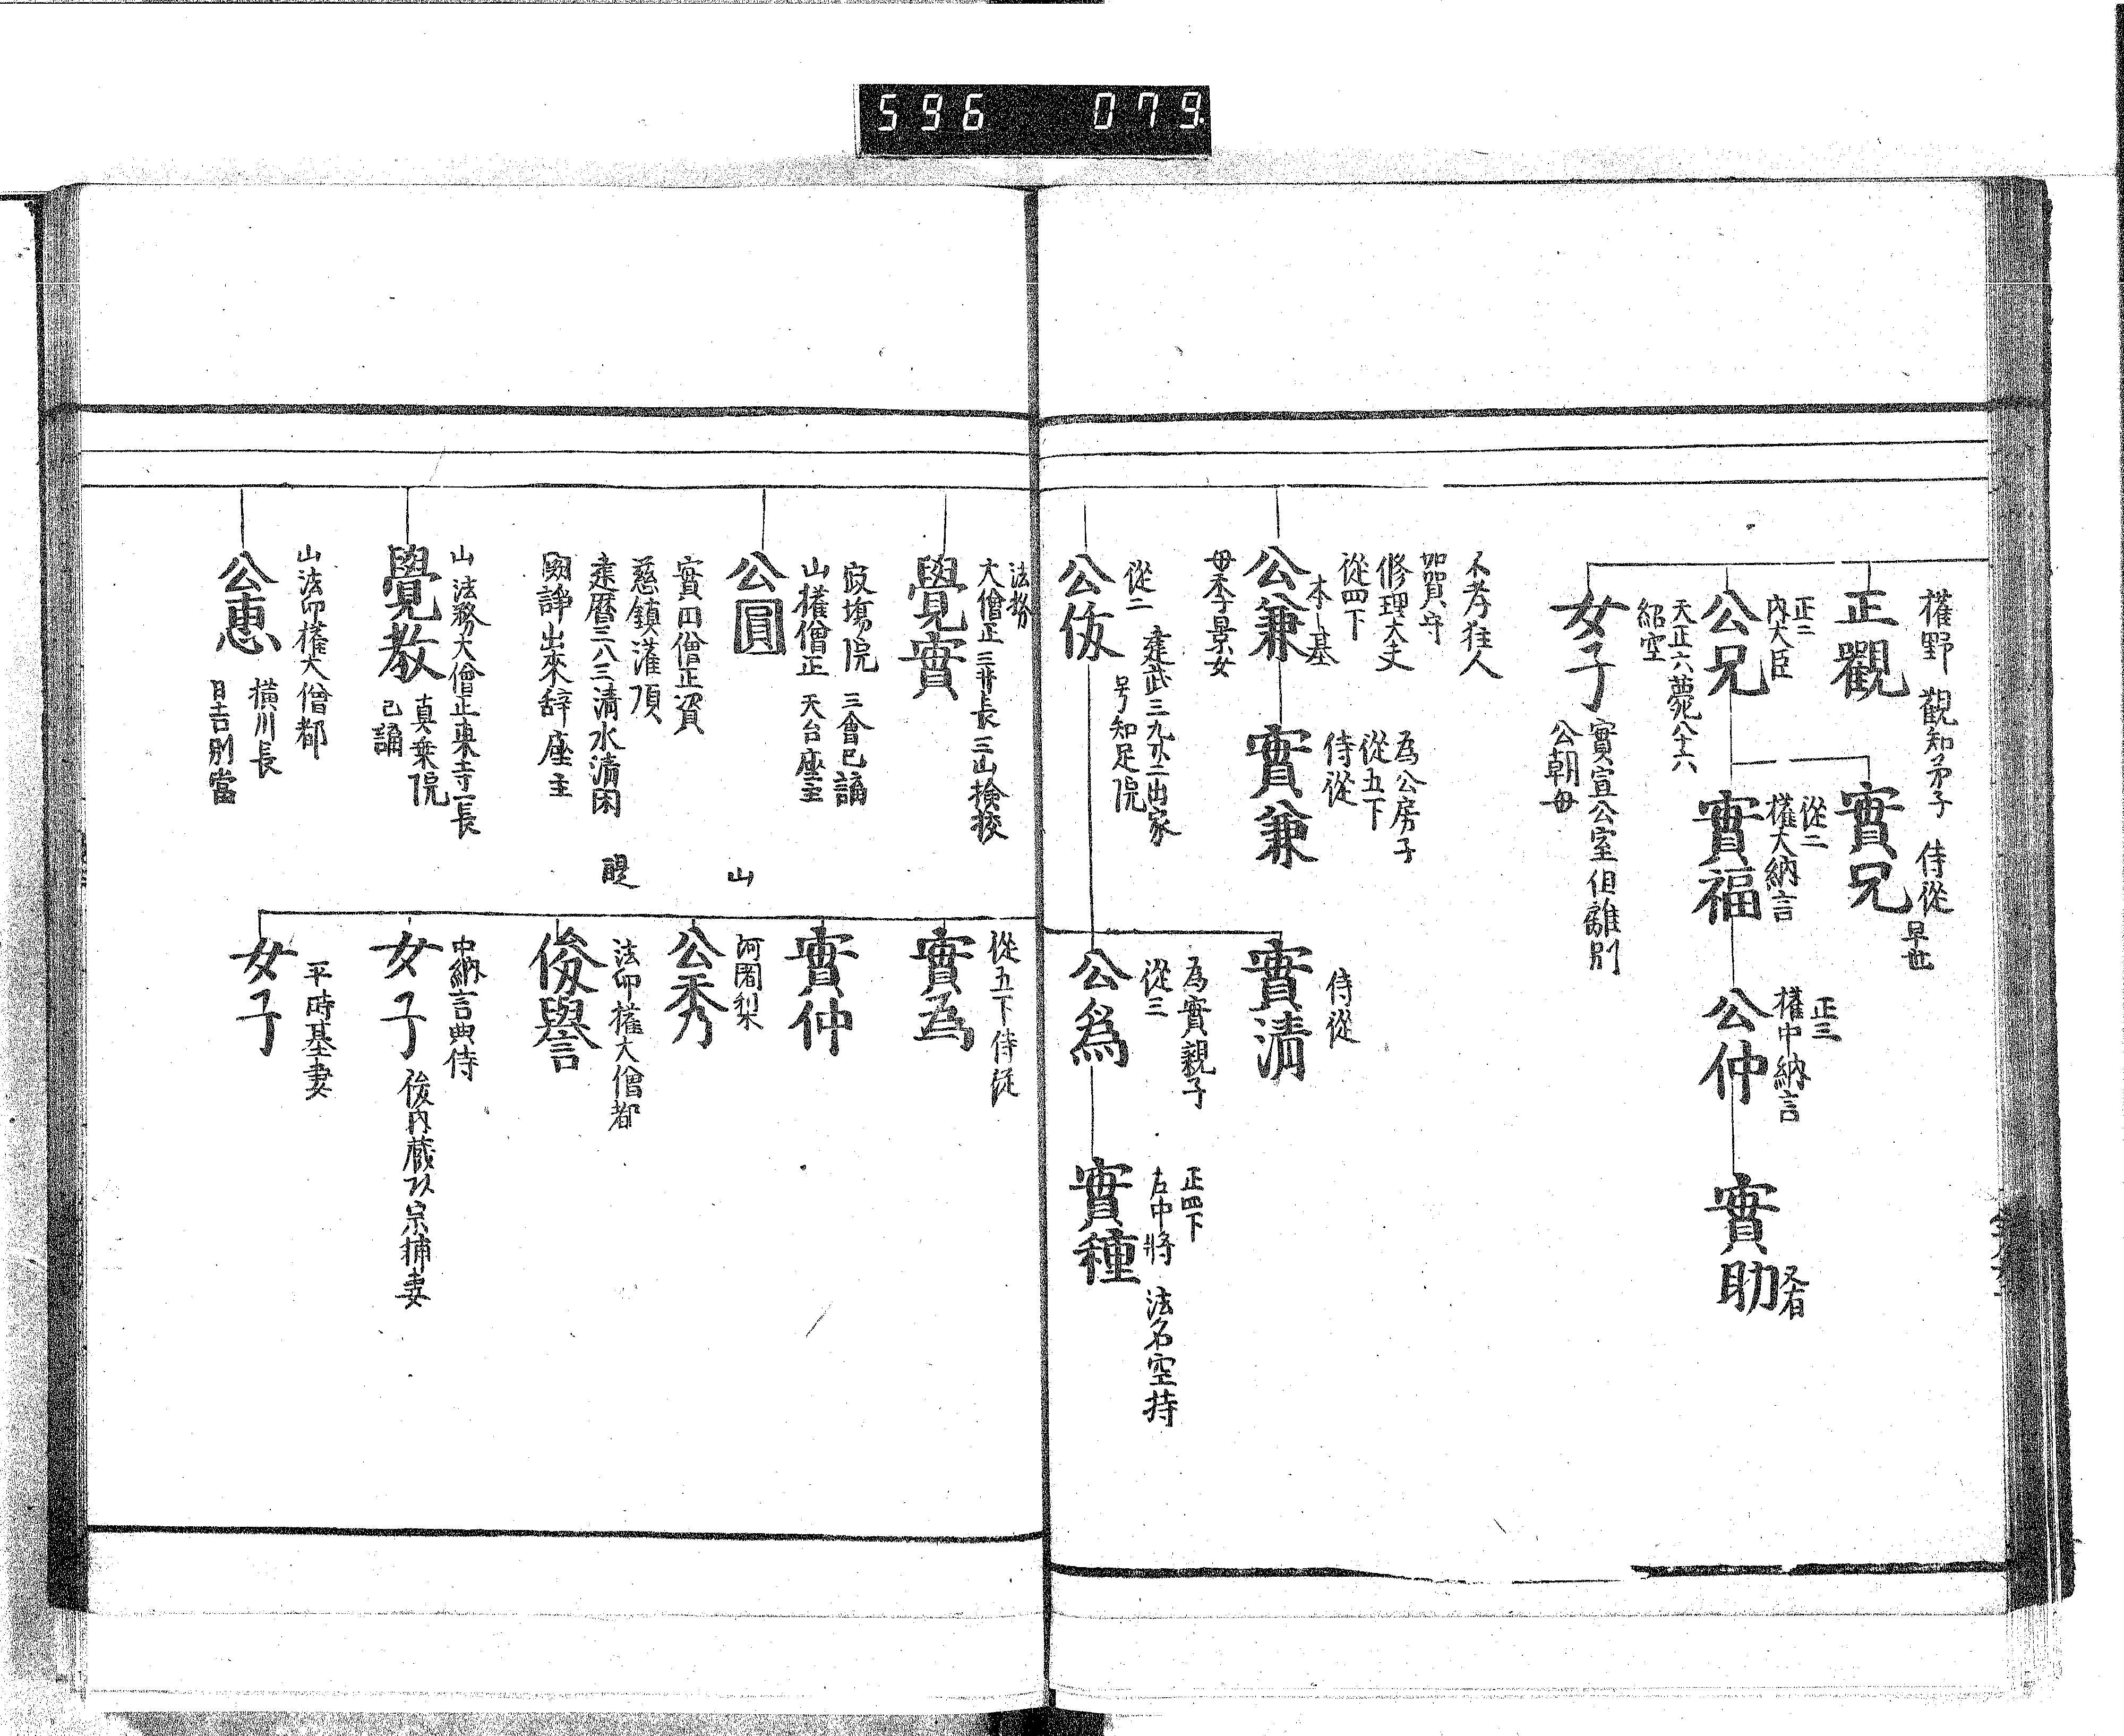 596 079
權野 觀知弟子
正觀
侍從
早世
實兄
正二
内大臣
公兄
天正六薨八十六
紹空
從二
權大納言
實福
正三
權中納言
公仲
實助
又右
女子
實宣公室但離別
公朝母
不孝狂人
加賀守
修理大夫
從四下
本ー基
公兼
母季景女
為公房子
從五下
侍從
實兼
侍從
實清
從二 建武三九廿二出家
公
号知足院
為實親子
從三
公爲
正四下
右中將 法名空持
實種
法務
大僧正 三井長 三山検校
覺實
寂場院 三會已講
山權僧正 天台座主
公圓
實円僧正資
慈鎮灌頂
建暦三八三清水清閑
闘諍出來辞座主
山法務大僧正東寺一長
覺教
真乗院
已講
山法印權大僧都
公惠
横川長
日吉別當
從五下侍從
實爲
實仲
山
阿闍梨
公秀
醍
法印權大僧都
俊譽
中納言典侍
女子
後内蔵以宗捕妻
平時基妻
女子